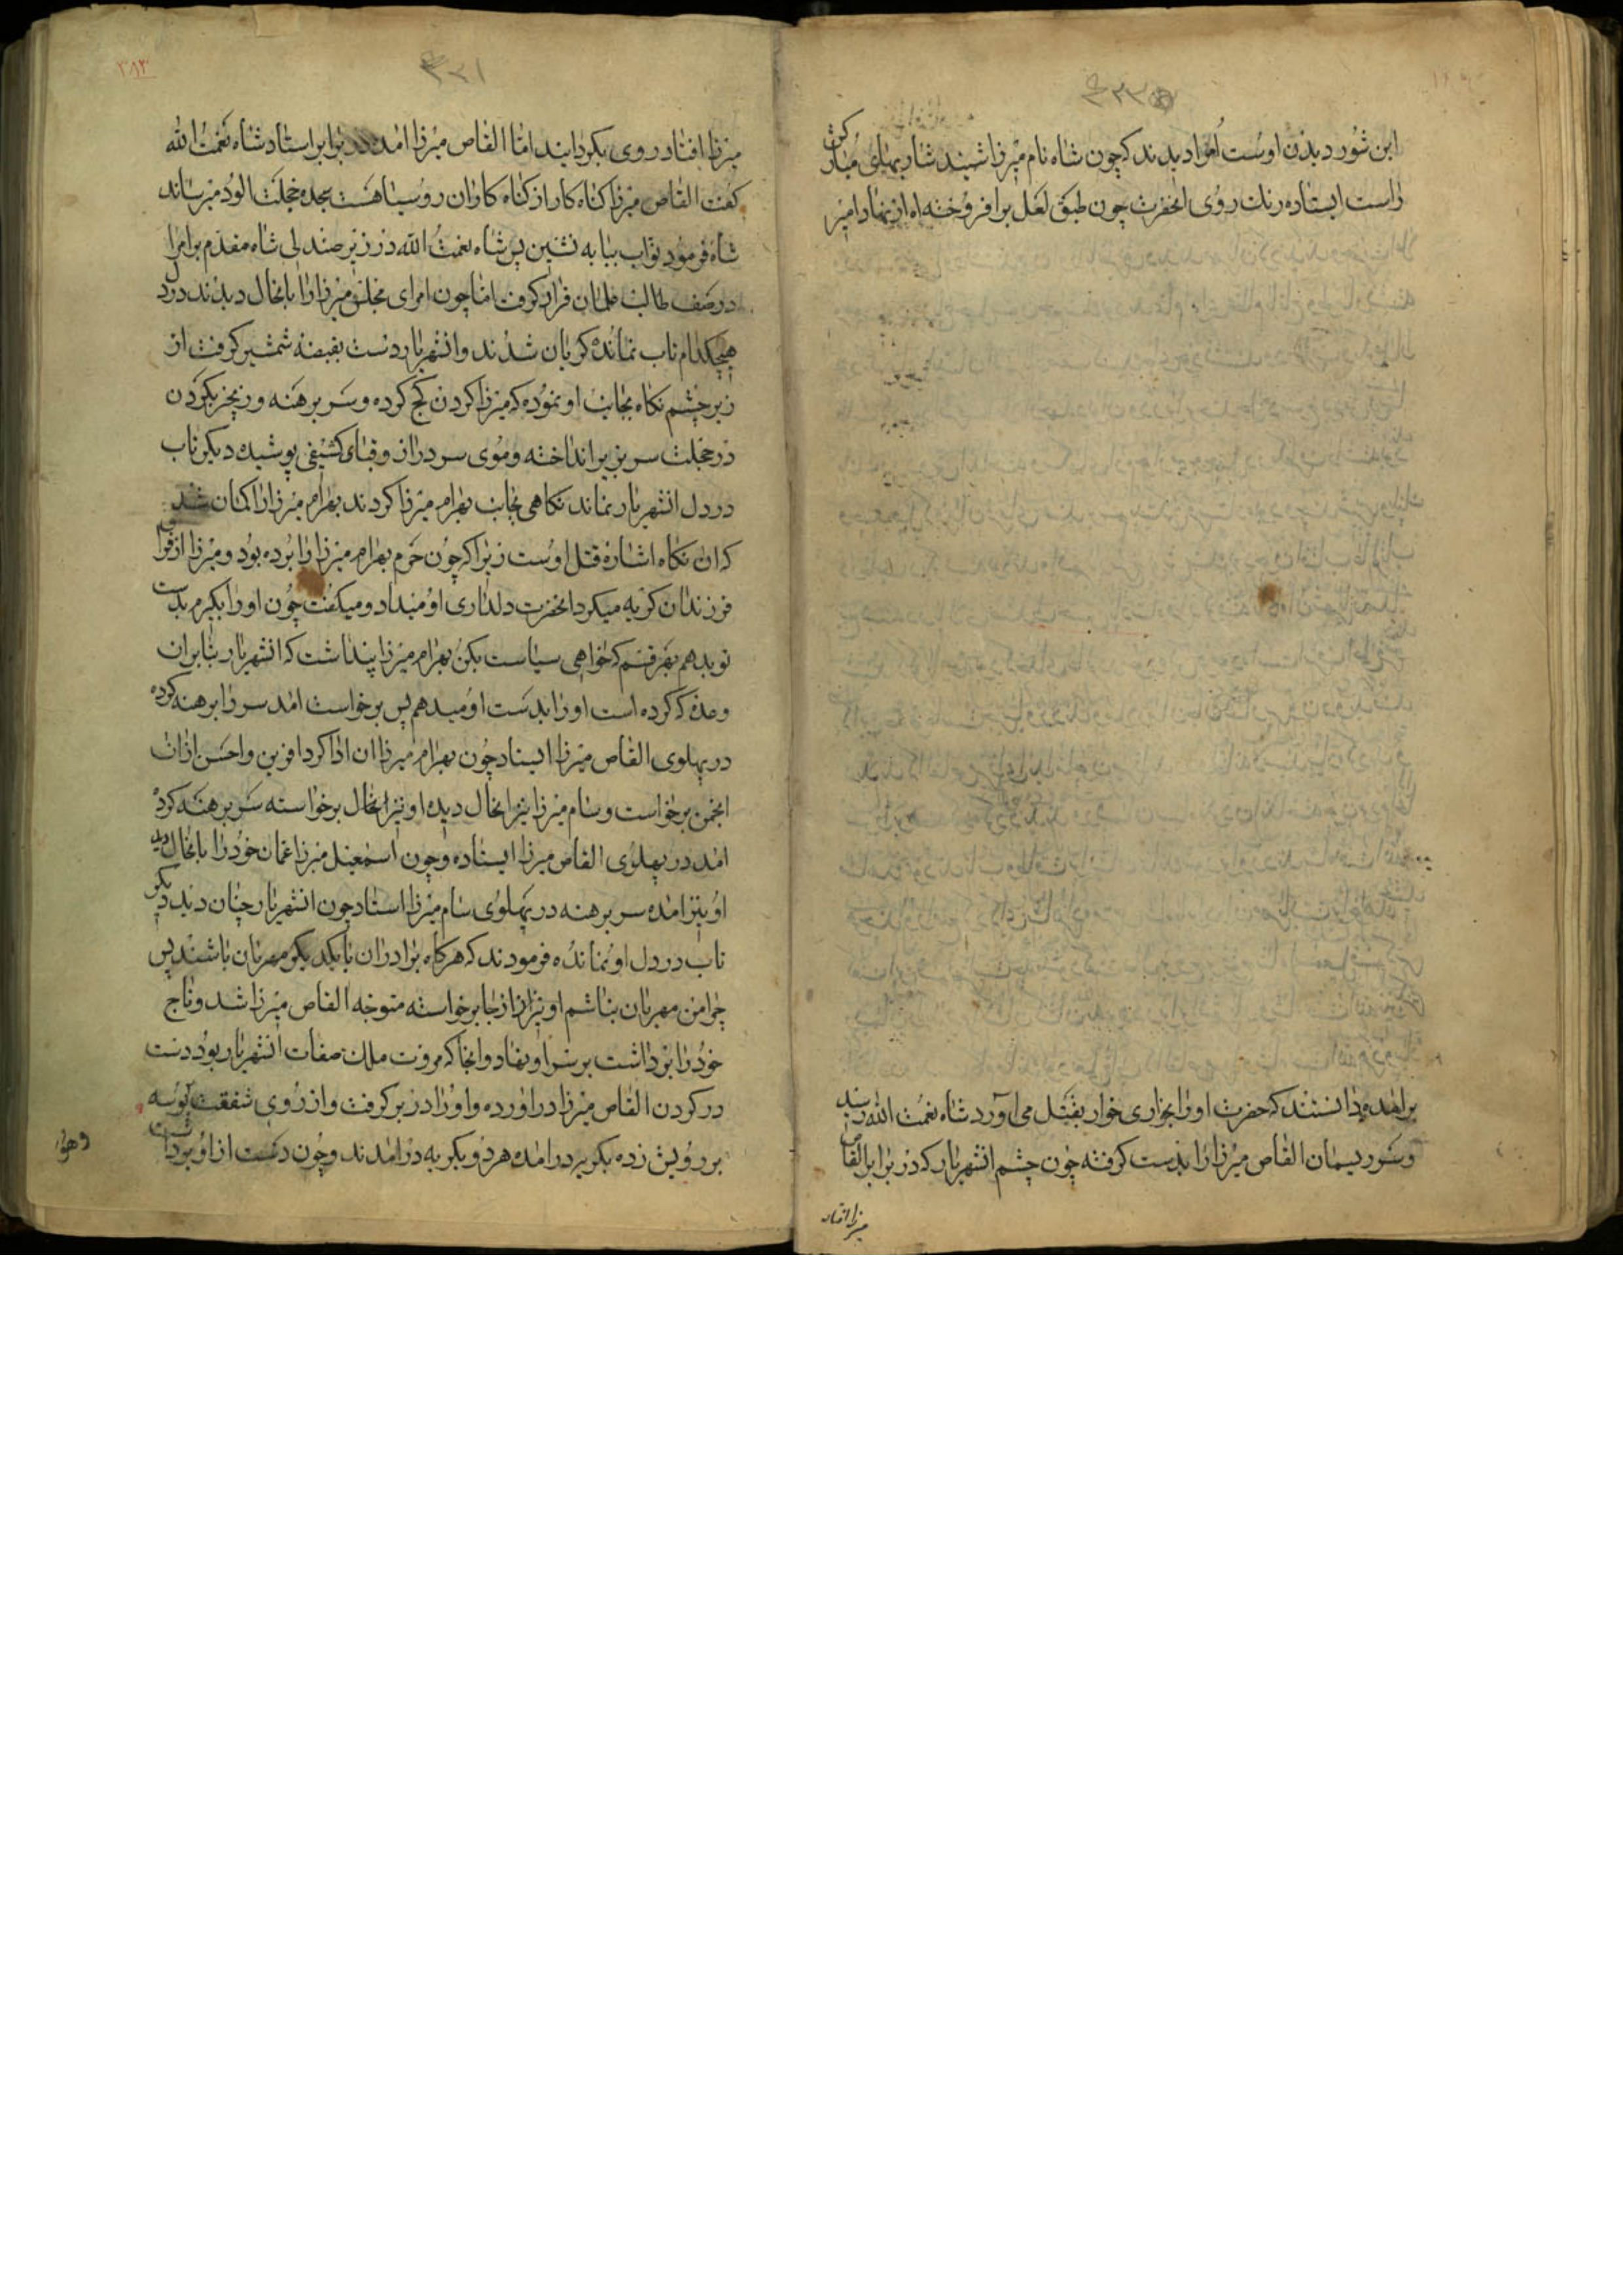 این شور دیدن اوست اُمرا دیدند که چون شاه نام میرزا شنید شاربهای مبارکش
راست ایستاده رنك روی انحضرت چون طبق لعل برافروخته اه از نهاد امیر
برامده دانستند که حضرت اورا بخواری خوار بقتل می اورد شاه نعمت الله رسید
وسر ریسمان القاص میرزا را بدست کرفته چون چشم انشهریار که در برابر القاص
میرزا افتاد
۳۸۳
میرزا افتاد روی بکردانید امّا القاص میرزا امده در برابر استاد شاه نعمت الله
کفت القاص میرزا کناه کار از کناه کاران روسیاهست سجده خجلت الود میرساند
شاه فرمود نواب بیا به نشین پس شاه نعمت الله در زیر صندلی شاه مقدم بر امرا
در صف طالب فلمان قرار کرفت امّا چون امرای مجلس میرزا را بانحال دیدند در دل
هیچکدام تاب نمانده کریان شدند وانشهریار دست بقبضه شمشیر کرفت از
زیر چشم نکاه بجانب او نموده که میرزا کردن کج کرده وسر برهنه وزنجیر بکردن
در خجلت سر بزیر انداخته وموی سر دراز وقبای کثیفی پوشیده دیکر تاب
در دل انشهریار نماند نکاهی بجانب بهرام میرزا کردند بهرام میرزا را کمان شد
که ان نکاه اشاره قتل اوست زیرا که چون حرم بهرام میرزا را برده بود ومیرزا از فراق
فرزندان کریه میکرد انحضرت دلداری او میداد ومیکفت چون اورا بکیرم بدست
تو بدهم بهر قسم که خواهی سیاست بکن بهرام میرزا پنداشت که انشهریار بنابران
وعده که کرده است اورا بدست او میدهم پس برخواست امد سر را برهنه کرده
در پهلوی القاص میرزا ایستاد چون بهرام میرزا ان ادا کرد افرین واحسن ازان
انجمن برخواست وسام میرزا نیز انحال دیده او نیز انحال برخواسته سر برهنه کرده
امد در پهلوی القاص میرزا ایستاده وچون اسمعیل میرزا عمان خود را بانحال دید
او نیز امده سر برهنه در پهلوی سام میرزا استاد چون انشهریار چنان دید دیکر
تاب در دل او نمانده فرمودند که هرکاه برادران با یکدیکر مهربان باشند پس
چرا من مهربان نباشم او نیز از جا برخواسته متوجه القاص میرزا شد وتاج
خود را برداشت بر سر او نهاد وانجا که مروت ملك صفات انشهریار بود دست
در کردن القاص میرزا دراورده واورا در بر کرفت واز روی شفقت بوسه
بر رویش زده بکریه درامده هردو بکریه درامدند وچون دست از او برداشت
وهزار